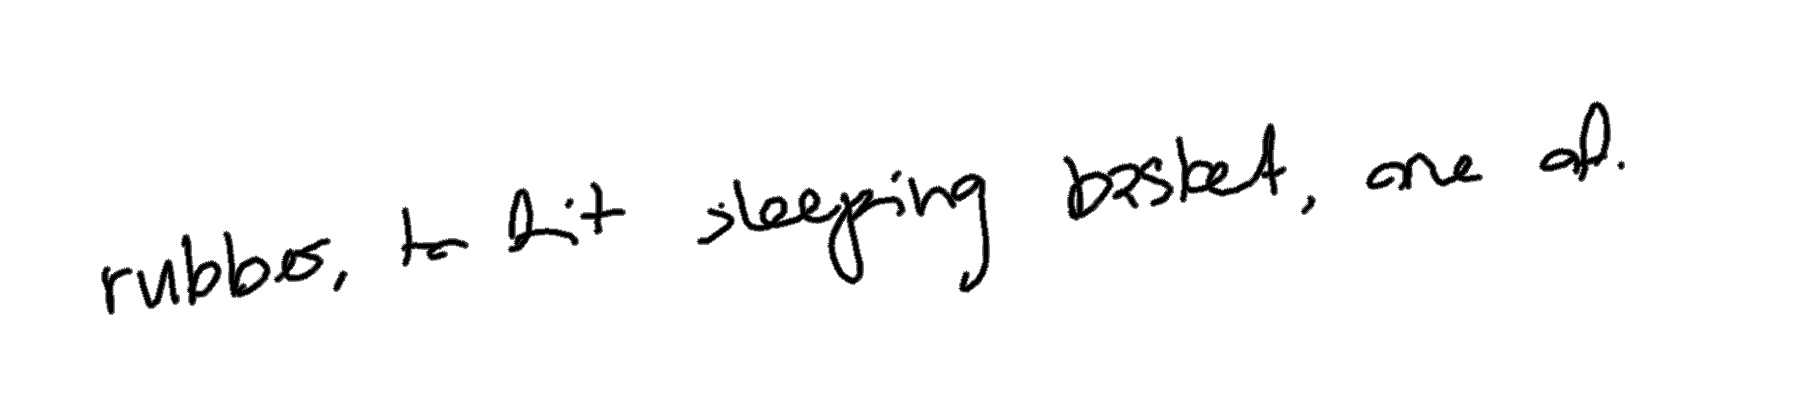 rubber, to hit sleeping basket, one of.